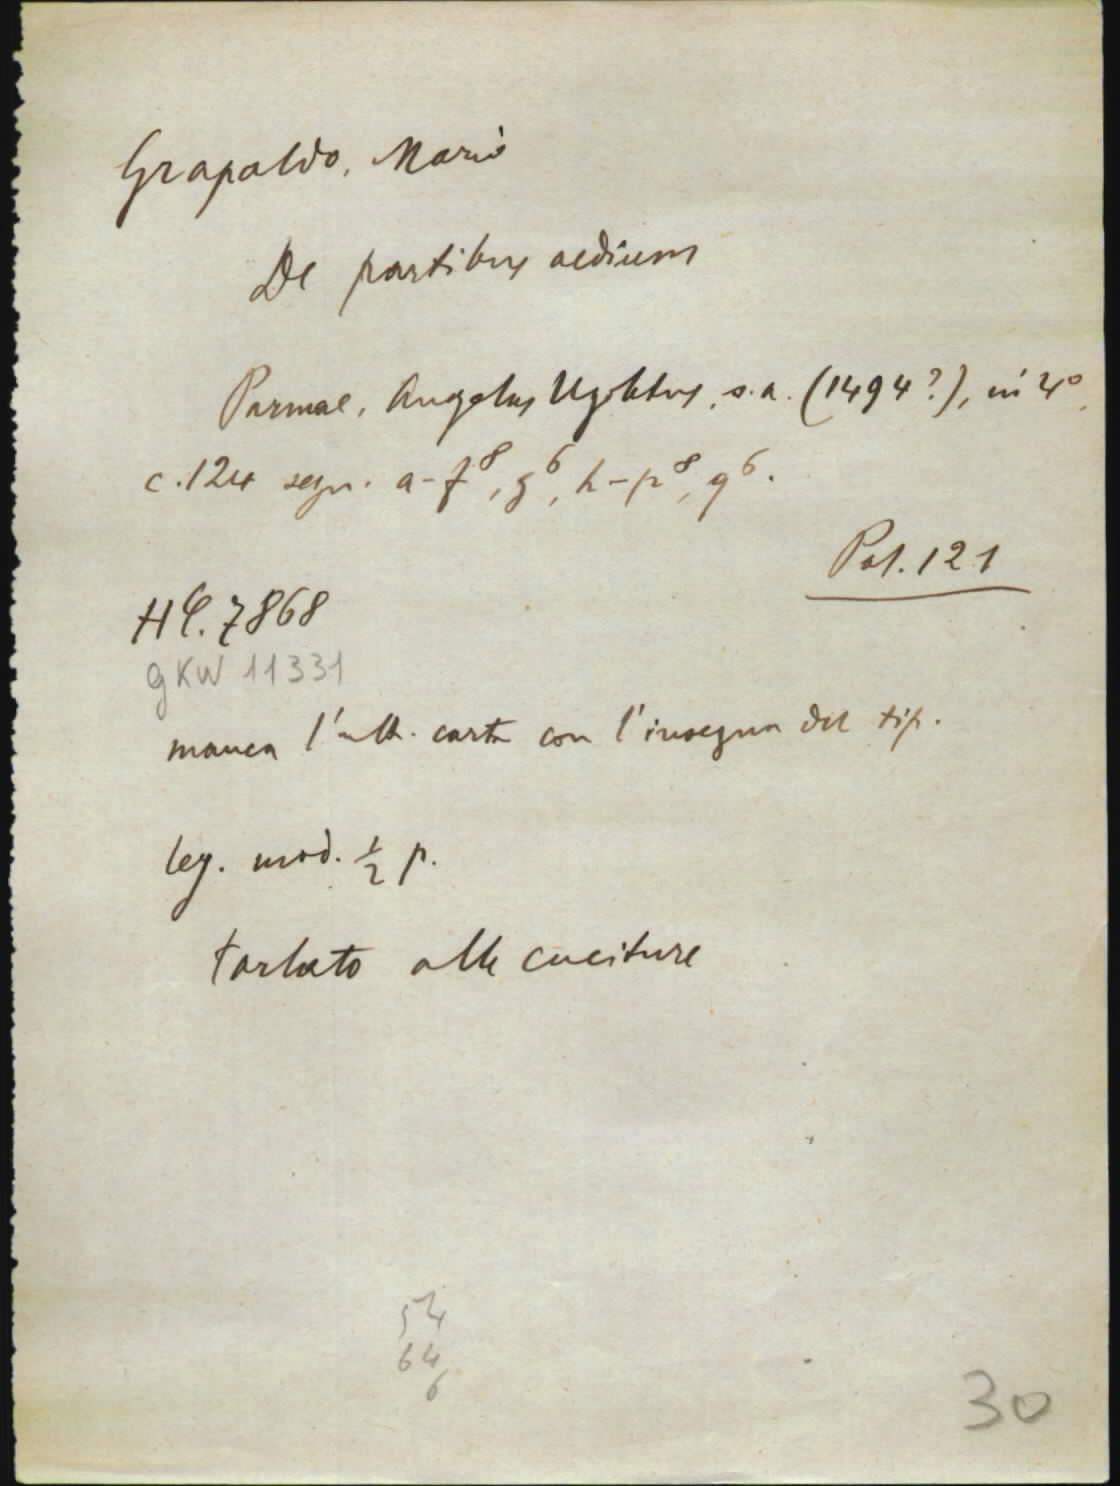 Grapaldo, Mario
De partibus aedium
Parmae, Angelus Ugoletus, s.a. (1494?), in 4°,
c. 124 segn. a-f⁸, g⁶, h-p⁸, q⁶.
Pal. 121
HC. 7868
GKW 11331
manca l'ult. carta con l'insegna del tip.
leg. mod. ½ p.
tarlato alle cuciture
54
64
6
30